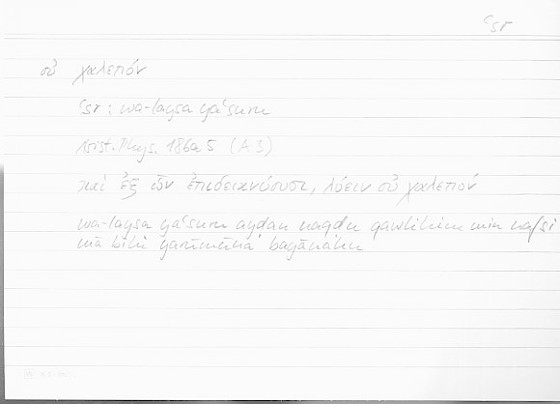 ʿsr
οὐ χαλεπόν
ʿsr : wa-laysa yaʿsuru
Arist. Phys. 186a5 (A 3)
καὶ ἐξ ὧν ἐπιδεικνύουσι, λύειν οὐ χαλεπόν
wa-laysa yaʿsuru ayḍan naqḍu qawlihim min nafsi
mā bihī yarūmūna bayānahu